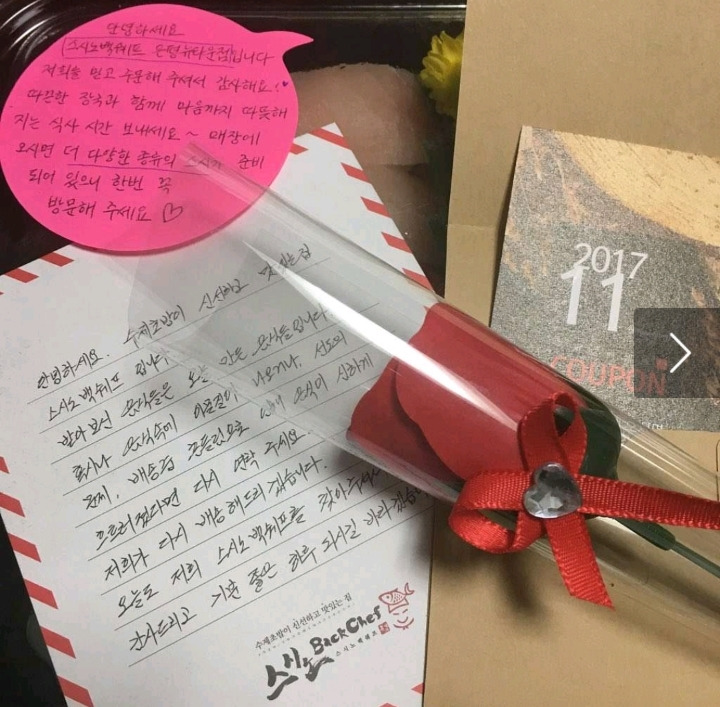 안녕하세요
스시노백쉐프 은평뉴타운점입니다
저희를 믿고 주문해 주셔서 감사해요!♥
따끈한 장국과 함께 마음까지 따뜻해
지는 식사 시간 보내세요~ 매장에
오시면 더 다양한 종류의 스시가 준비
되어 있으니 한번 꼭
방문해 주세요 ♡
안녕하세요. 수제초밥이 신선하고 맛있는집
스시노백쉐프 입니다
받아보신 음식들은 오늘 만든 음식들입니다.
혹시나 음식속에 이물질이 나오거나, 선도의
문제, 배송중 흔들림으로 인해 음식이 심하게
흐트러졌다면 다시 연락 주세요.
저희가 다시 배송해드리겠습니다.
오늘도 저희 스시노백쉐프를 찾아주셔서
감사드리고 기분 좋은 하루 되시길 바라겠습
수제초밥이 신선하고 맛있는 집
스시노 BackChef
스시노백쉐프
2017
11
COUPON